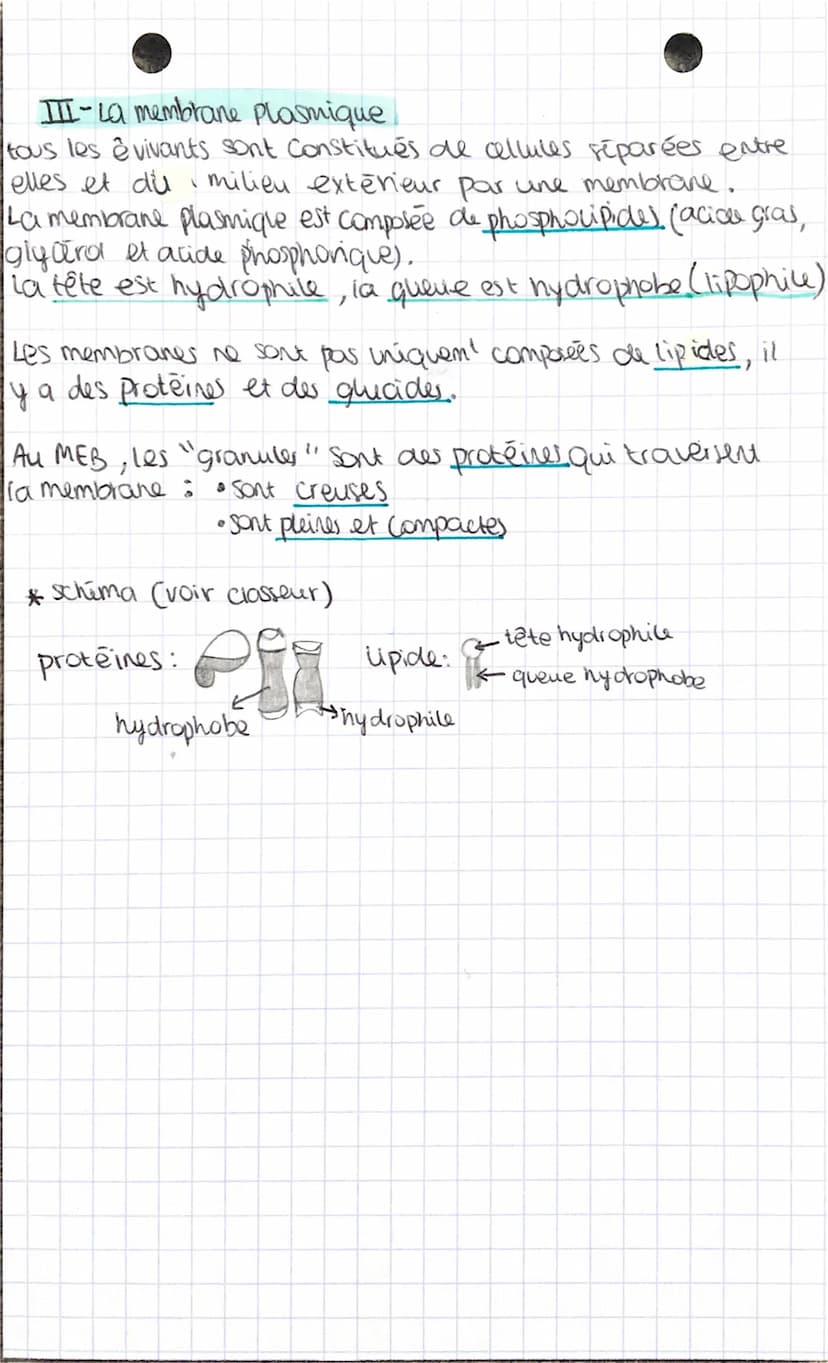 III - La membrane plasmique
tous les ê vivants sont constitués de cellules séparées entre
elles et du milieu extérieur par une membrane.
La membrane plasmique est composée de phospholipides (acide gras,
glycérol et acide phosphorique).
La tête est hydrophile, la queue est hydrophobe (lipophile)
Les membranes ne sont pas uniquemt composées de lipides, il
y a des protéines et des glucides.
Au MEB, les "granules" sont des protéines qui traversent
la membrane : • sont creuses
• sont pleines et compactes
* schéma (voir classeur)
protéines : lipide : tête hydrophile
queue hydrophobe
hydrophobe hydrophile